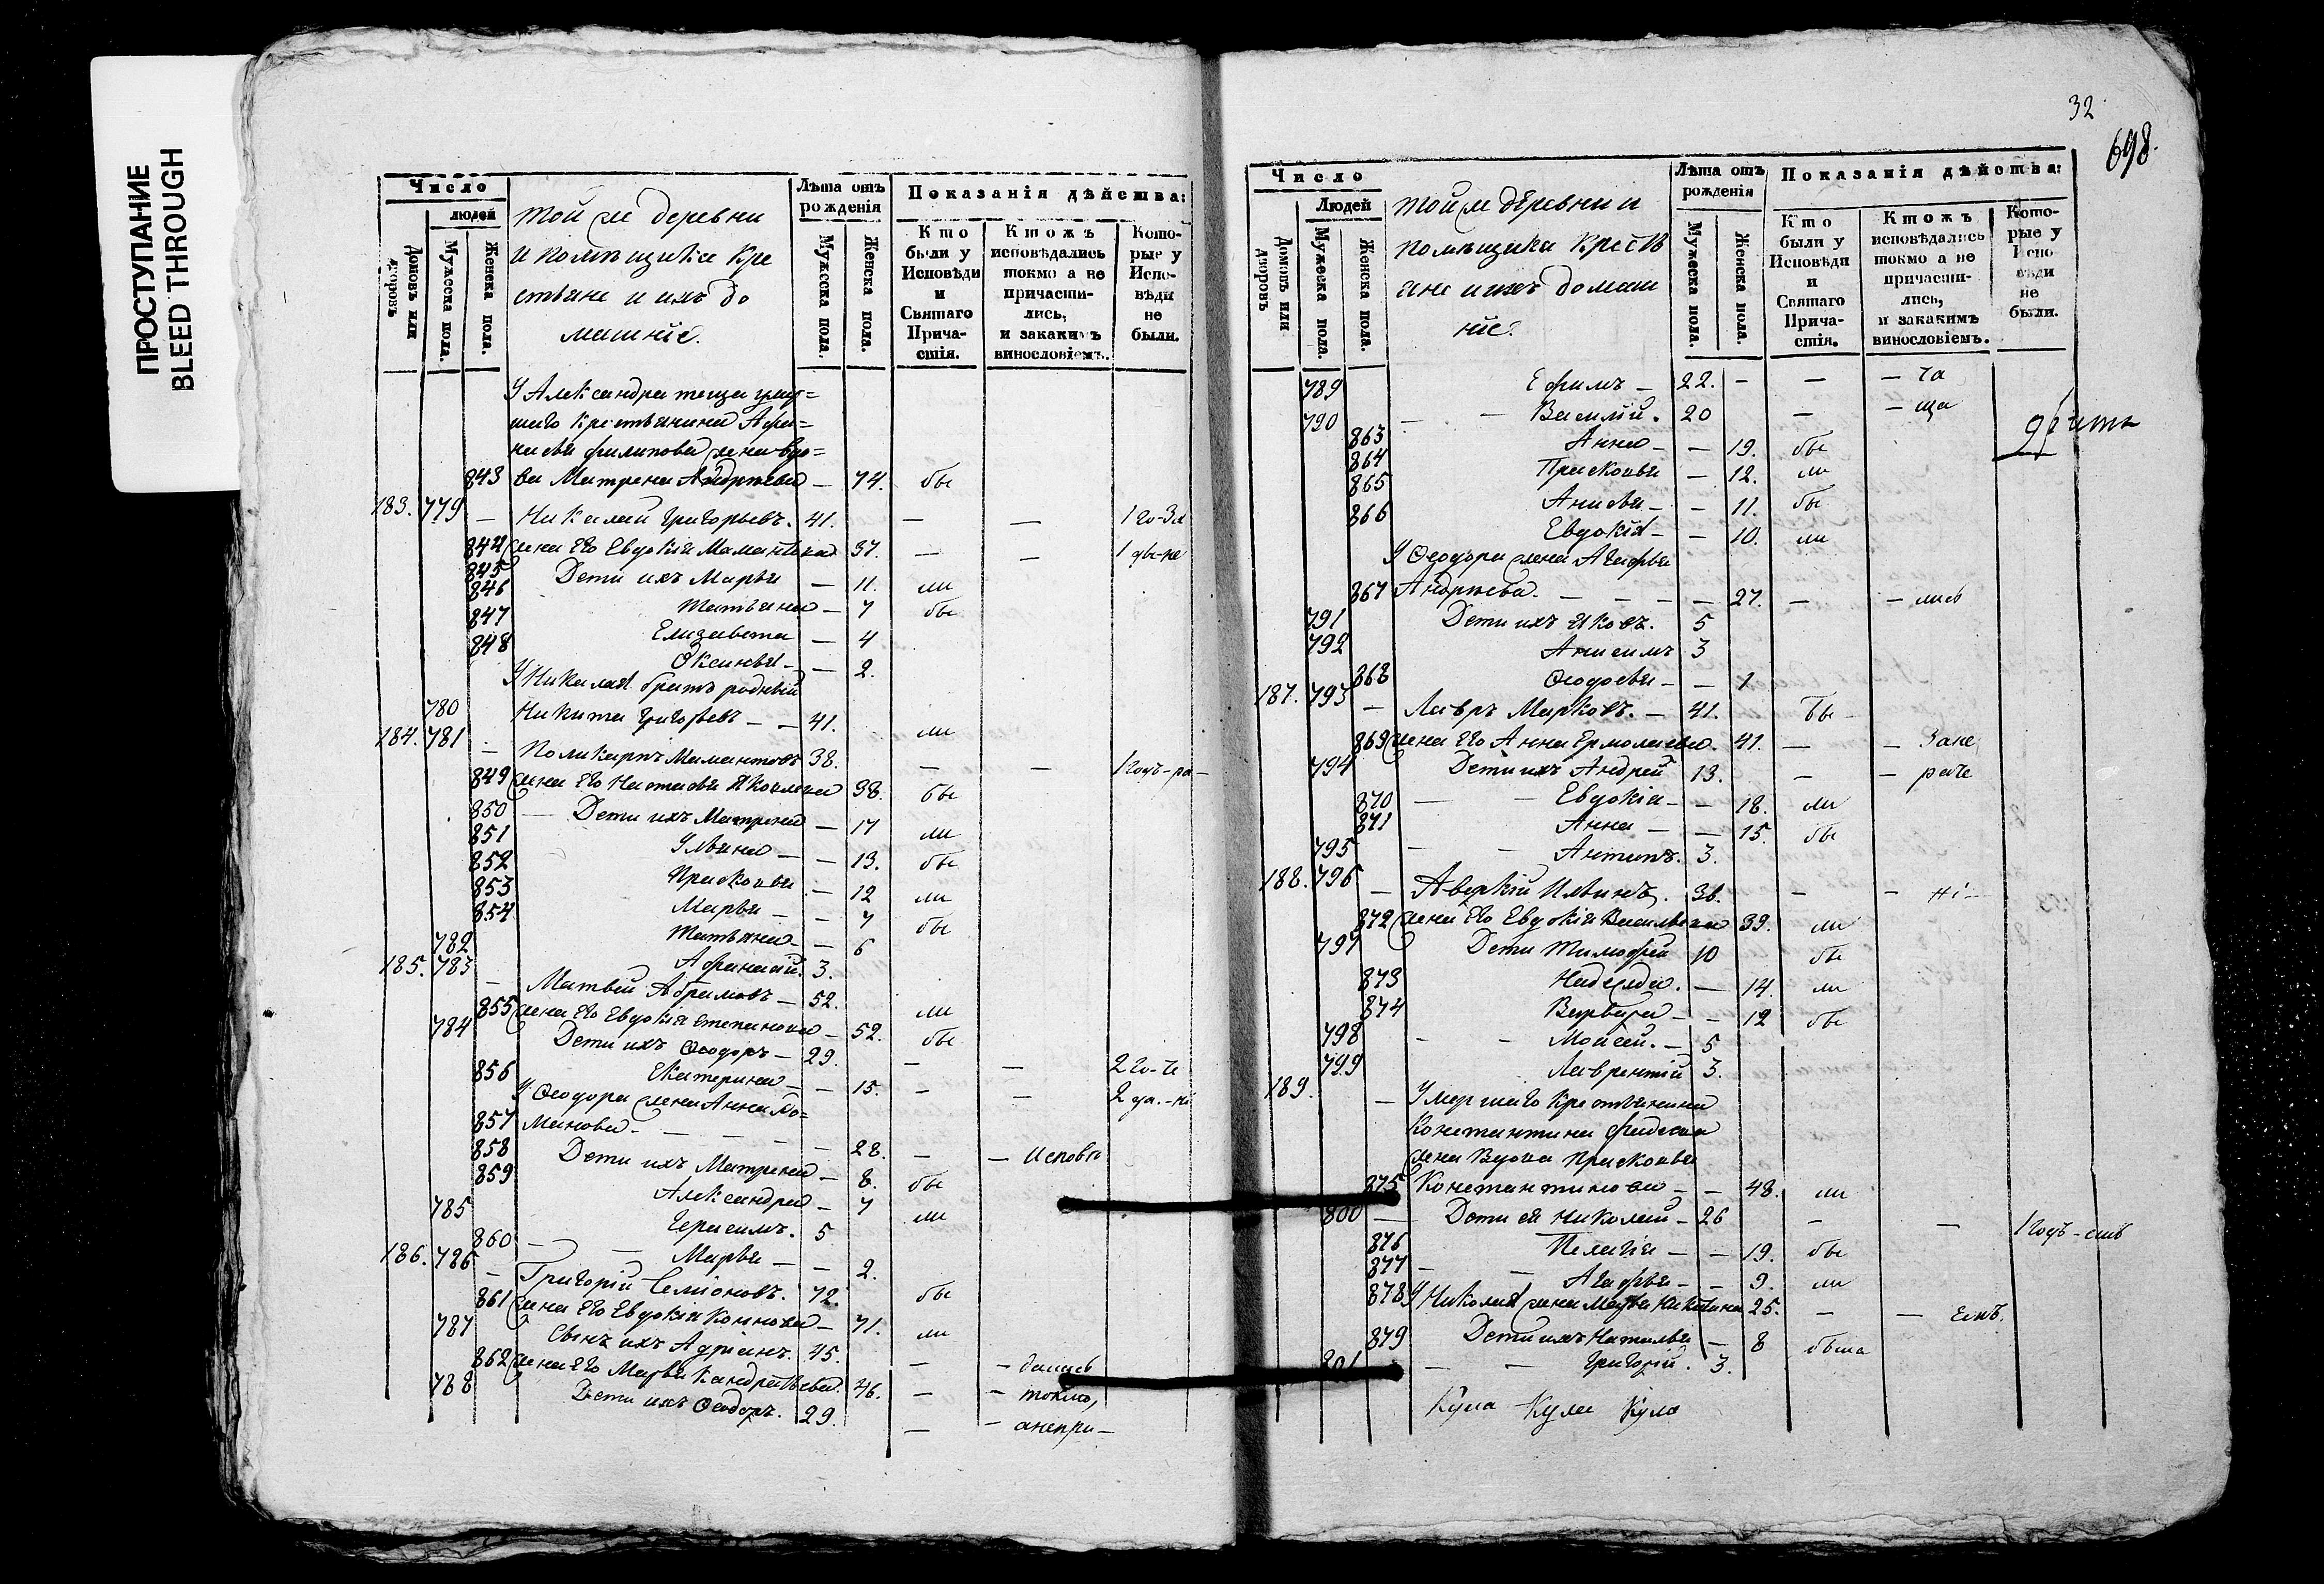 ПРОСТУПАНИЕ
BLEED THROUGH
Число
людей
Домовъ или дворовъ
Мужеска пола.
Женска пола.
той же деревни
и помѣщика кре
стьяне и ихъ до
машнiе.
Лѣта отъ рожденiя
Мужеска пола.
Женска пола.
Показанiя дѣйства:
Кто были у Исповѣди и Святаго Причастiя.
Ктожъ исповѣдались токмо а не причастились, и закакимъ винословiемъ.
Которые у Исповѣди не были.
У Александра теща умер=
шаго крестьянина Афа=
насья филипова жена вдо=
843 ва Матрена Андреева — 74. бы
183. 779 — Николай Григорьевъ. 41. — — 1 го-за
844 жена Его Евдокiя Мамантова 37. — — 1
845 Дети ихъ Марья — 11. ли
846 Татьяна — 7 бы
847 Елизавета — 4
848 Оксинья — — 2.
У Николая братъ родный
780 Никита Григорьевъ — — 41. ли
184. 781 — Поликарпъ Мамантовъ 38. — — 1 годъ-ра-
849 жена Его Настасья Яковлева 38. бы
850 — Дети ихъ Матрена — 17 ли
851 Ульяна — — 13. бы
852 Прасковья — 12 ли
853 Марья — — 7 бы
854 Татьяна — — 6
782 Афанасiй. 3.
185. 783 — Матвей Абрамовъ — 52. ли
855 жена Его Евдокiя Степанова — 52. бы
784 Дети ихъ Ѳеодоръ — 29. — — 2 го-
856 Екатерина — — 15. — — 2
У Ѳеодора жена Анна Ро=
857 манова — — — — 28. — — исповѣ
858 Дети ихъ Матрена — 8. бы
859 Александра — 7 ли
785 Герасимъ. 5
860 — — Марья — — 2.
186. 786 — Григорiй Семiоновъ. 72. бы
861 жена Его Евдокiя Кононова — 71. ли
787 Сынъ ихъ Адрiанъ. 45. — — дались
862 жена Его Марья Кандратьева. 46. — — токмо,
788 Дети ихъ Ѳеодоръ. 29. — — анепри—
32
698.
Число
Людей
Домовъ или дворовъ
Мужеска пола.
Женска пола.
той же деревни и
помѣщика крестьь
яне и ихъ домаш
нiе.
Лѣта отъ рожденiя
Мужеска пола.
Женска пола.
Показанiя дѣйства:
Кто были у Исповѣди и Святаго Причастiя.
Ктожъ исповѣдались токмо а не причастились, и закакимъ винословiемъ.
Которые у Исповѣди не были.
789 Ефимъ — 22. — — — ча
790 — — Василiй. 20 — — ща
863 Анна — — 19. бы
864 Прасковья — 12. ли
865 Анисья — — 11. бы
866 Евдокiя — — 10. ли
У Ѳеодора жена Агафья
867 Андреева. — — — — 27. — — лись
791 Дети ихъ Яковъ. 5
792 Анисимъ 3
868 Ѳеодосья — — 1
187. 793 — Лавръ Марковъ. — 41. бы
869 жена Его Анна Ермолаева. 41. — — Зане
794 Дети ихъ Андрей 13. — — раче
870 — — Евдокiя — — 18. ли
871 Анна — — 15. бы
795 — — Антипъ. 3.
188. 796 — Аверкiй Ильинъ. 38. — — нi—
872 жена Его Евдокiя Васильева 39. ли
797 Дети Тимофей 10 бы
873 Надежда. — 14. ли
874 Варвара — — 12 бы
798 — — Мойсей. — 5
799 Лаврентiй 3.
189. — Умершаго крестьянина
Константина фадеева
жена вдова Прасковья
875 Константинова — — 48. ли
800 — Дети ея Николай — 26 — — 1 годъ-
876 Пелагiя — — 19. бы
877 — — Агафья — — 9. ли
878 У Николая жена Марья Никитина 25. — — емъ.
879 Дети ихъ Наталья — 8 была
801 — — Григорiй. 3.